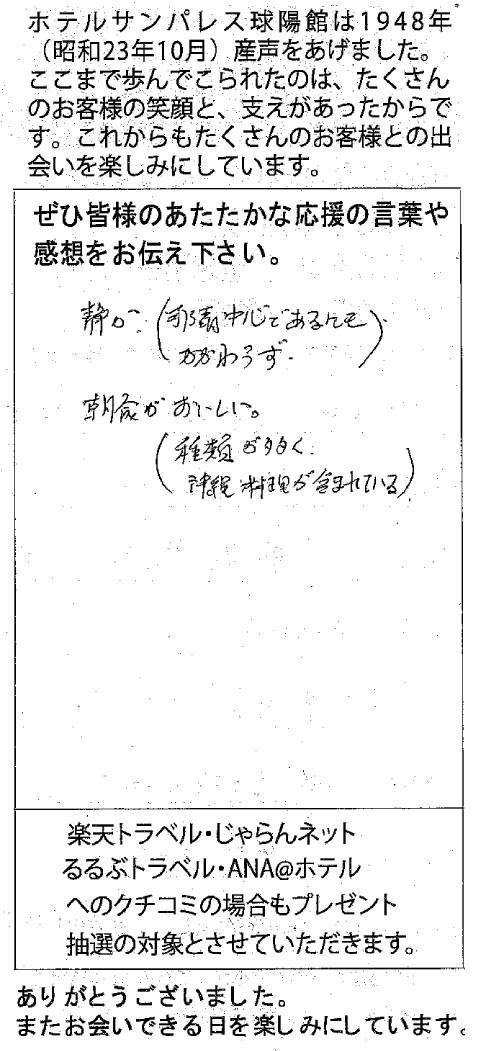 ホテルサンパレス球陽館は1948年
（昭和23年10月）産声をあげました。
ここまで歩んでこられたのは、たくさん
のお客様の笑顔と、支えがあったからで
す。これからもたくさんのお客様との出
会いを楽しみにしています。
ぜひ皆様のあたたかな応援の言葉や
感想をお伝え下さい。
静か（那覇中心であるにも
かかわらず）
朝食がおいしい。
（種類が多く、
沖縄料理が含まれている）
楽天トラベル・じゃらんネット
るるぶトラベル・ANA@ホテル
へのクチコミの場合もプレゼント
抽選の対象とさせていただきます。
ありがとうございました。
またお会いできる日を楽しみにしています。